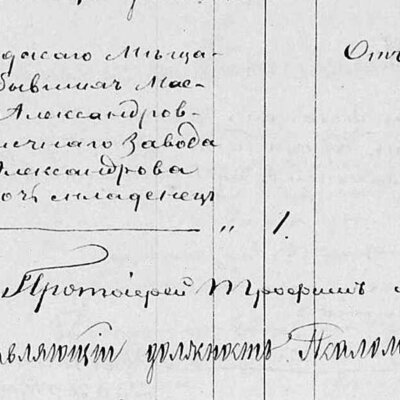 дскаго Мѣща-
бывшаг Мас- Отъ
Александров-
ичнаго Завода
Александрова
очь младенецъ
" 1.
Протоіерей Трофимъ
авляющій должность Псалом